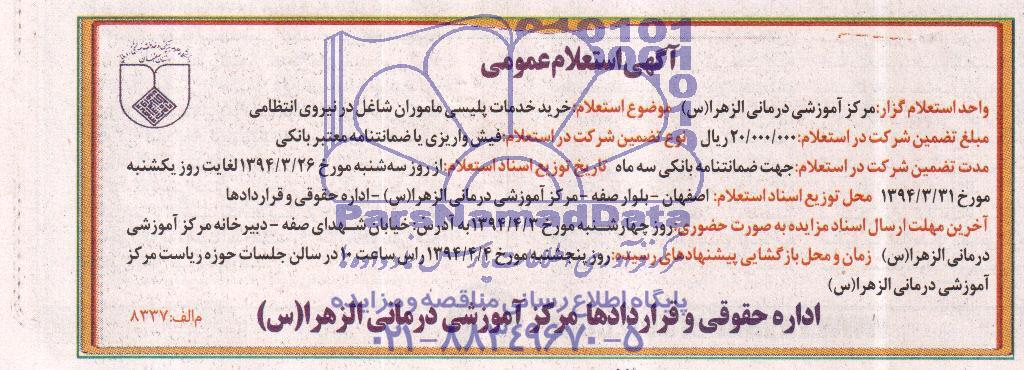 آگهی استعلام عمومی
واحد استعلام گزار: مرکز آموزشی درمانی الزهرا(س) موضوع استعلام: خرید خدمات پلیسی ماموران شاغل در نیروی انتظامی
مبلغ تضمین شرکت در استعلام: ۲۰/۰۰۰/۰۰۰ ریال نوع تضمین شرکت در استعلام: فیش واریزی یا ضمانتنامه معتبر بانکی
مدت تضمین شرکت در استعلام: جهت ضمانتنامه بانکی سه ماه تاریخ توزیع اسناد استعلام: از روز سه‌شنبه مورخ ۱۳۹۴/۳/۲۶ لغایت روز یکشنبه
مورخ ۱۳۹۴/۳/۳۱ محل توزیع اسناد استعلام: اصفهان - بلوار صفه - مرکز آموزشی درمانی الزهرا(س) - اداره حقوقی و قراردادها
آخرین مهلت ارسال اسناد مزایده به صورت حضوری: روز چهارشنبه مورخ ۱۳۹۴/۴/۳ به آدرس: خیابان شهدای صفه - دبیرخانه مرکز آموزشی
درمانی الزهرا(س) زمان و محل بازگشایی پیشنهادهای رسیده: روز پنجشنبه مورخ ۱۳۹۴/۴/۴ راس ساعت ۱۰ در سالن جلسات حوزه ریاست مرکز
آموزشی درمانی الزهرا(س)
اداره حقوقی و قراردادها مرکز آموزشی درمانی الزهرا(س)
م الف: ۸۳۳۷
ParsNamadData
پایگاه اطلاع رسانی مناقصه و مزایده
۰۲۱-۸۸۳۴۹۶۷۰-۵